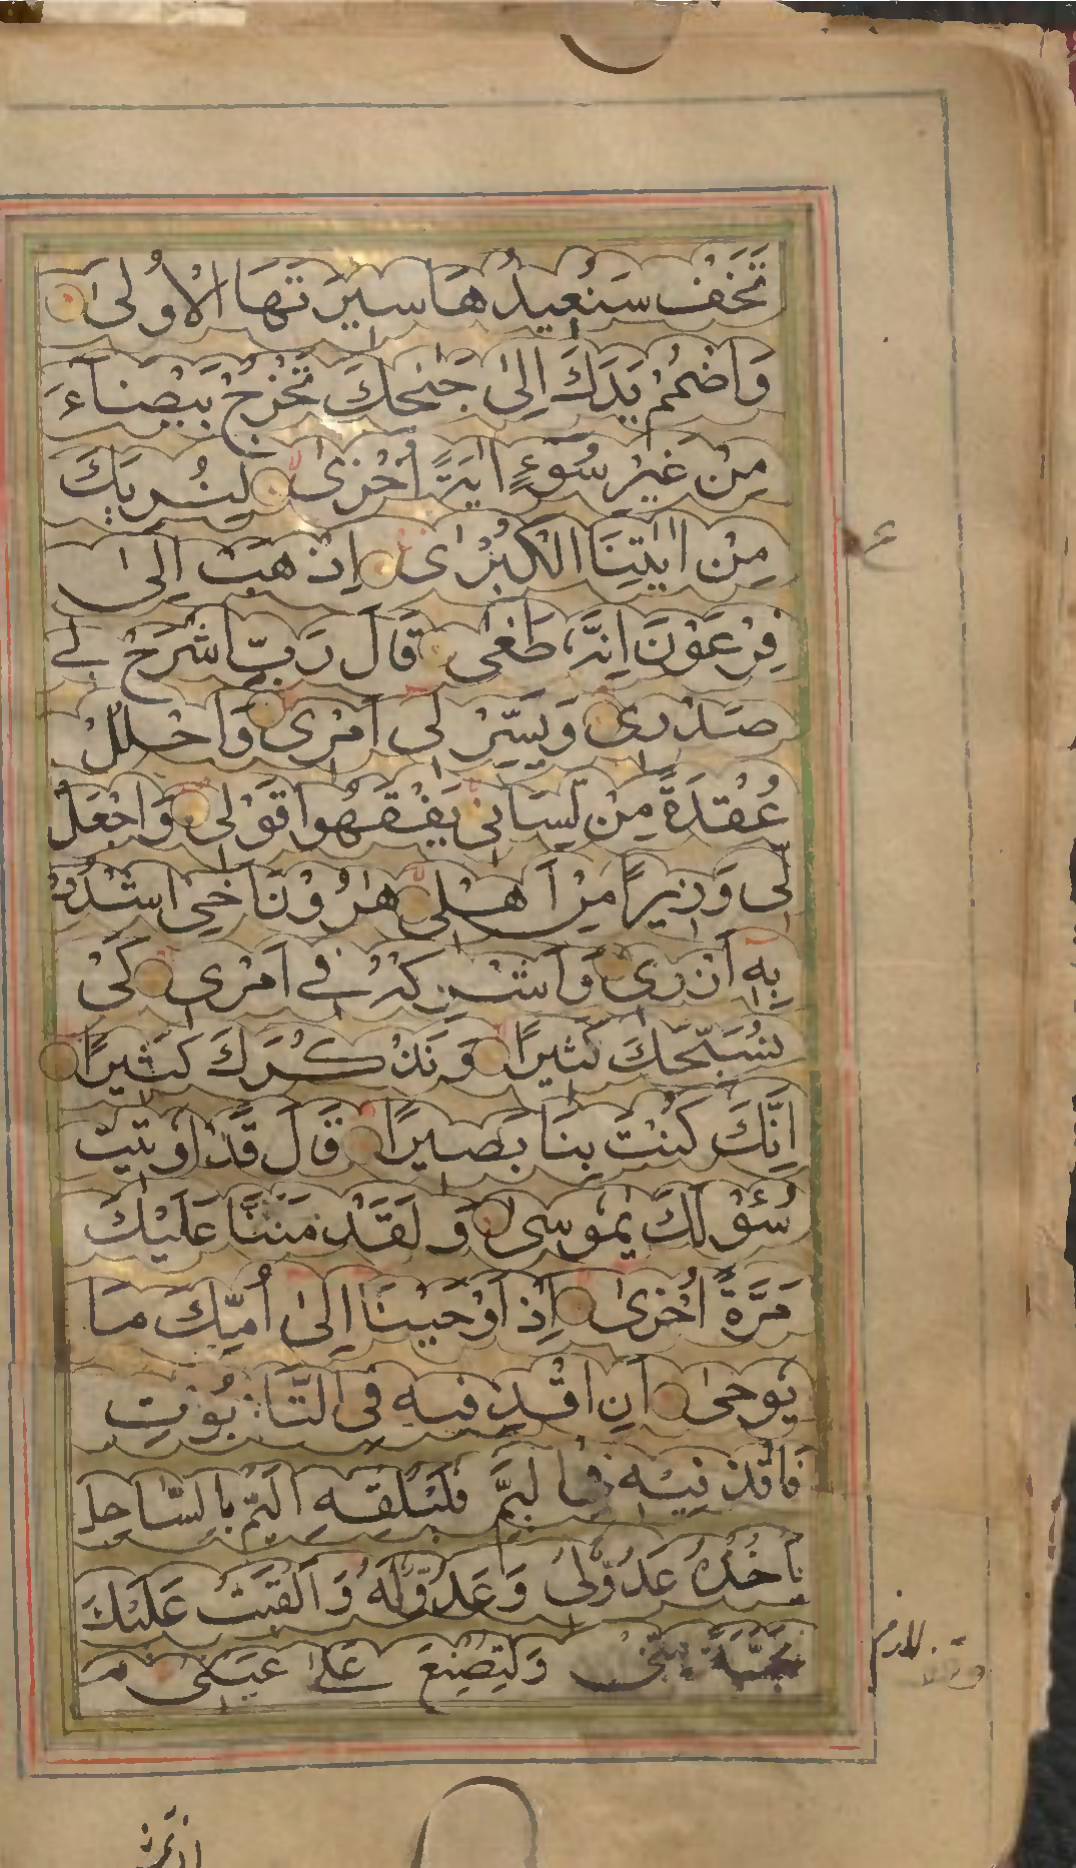 تَخَفْ سَنُعِيدُهَا سِيرَتَهَا الْاُولٰى
وَاضْمُمْ يَدَكَ اِلٰى جَنَاحِكَ تَخْرُجْ بَيْضَآءَ
مِنْ غَيْرِ سُوٓءٍ اٰيَةً اُخْرٰى لِنُرِيَكَ
مِنْ اٰيٰتِنَا الْكُبْرٰى اِذْهَبْ اِلٰى
فِرْعَوْنَ اِنَّهُ طَغٰى قَالَ رَبِّ اشْرَحْ لِي
صَدْرِى وَيَسِّرْ لِى اَمْرِى وَاحْلُلْ
عُقْدَةً مِنْ لِسَانِى يَفْقَهُوا قَوْلِى وَاجْعَلْ
لِى وَزِيرًا مِنْ اَهْلِى هٰرُوْنَ اَخِى اشْدُدْ
بِهِ اَزْرِى وَاَشْرِكْهُ فِے اَمْرِى كَىْ
نُسَبِّحَكَ كَثِيرًا وَنَذْكُرَكَ كَثِيرًا
اِنَّكَ كُنْتَ بِنَا بَصِيرًا قَالَ قَدْ اُوتِيتَ
سُؤْلَكَ يٰمُوسٰى وَلَقَدْ مَنَنَّا عَلَيْكَ
مَرَّةً اُخْرٰى اِذْ اَوْحَيْنَا اِلٰى اُمِّكَ مَا
يُوحٰى اَنِ اقْذِفِيهِ فِى التَّابُوْتِ
فَاقْذِفِيْهِ فِى الْيَمِّ فَلْيُلْقِهِ الْيَمُّ بِالسَّاحِلِ
يَاْخُذْهُ عَدُوٌّ لِى وَعَدُوٌّ لَهُ وَاَلْقَيْتُ عَلَيْكَ
مَحَبَّةً مِنِّى وَلِتُصْنَعَ عَلٰى عَيْنِى م
ع
وقف لازم
اذ تمشى